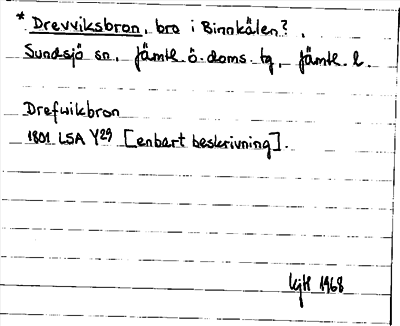 * Drevviksbron, bro i Binnkälen?,
Sundsjö sn, Jämtl. ö. doms. tg, Jämtl. l.
Drefwikbron
1801 LSA Y29 [enbart beskrivning].
KJH 1968